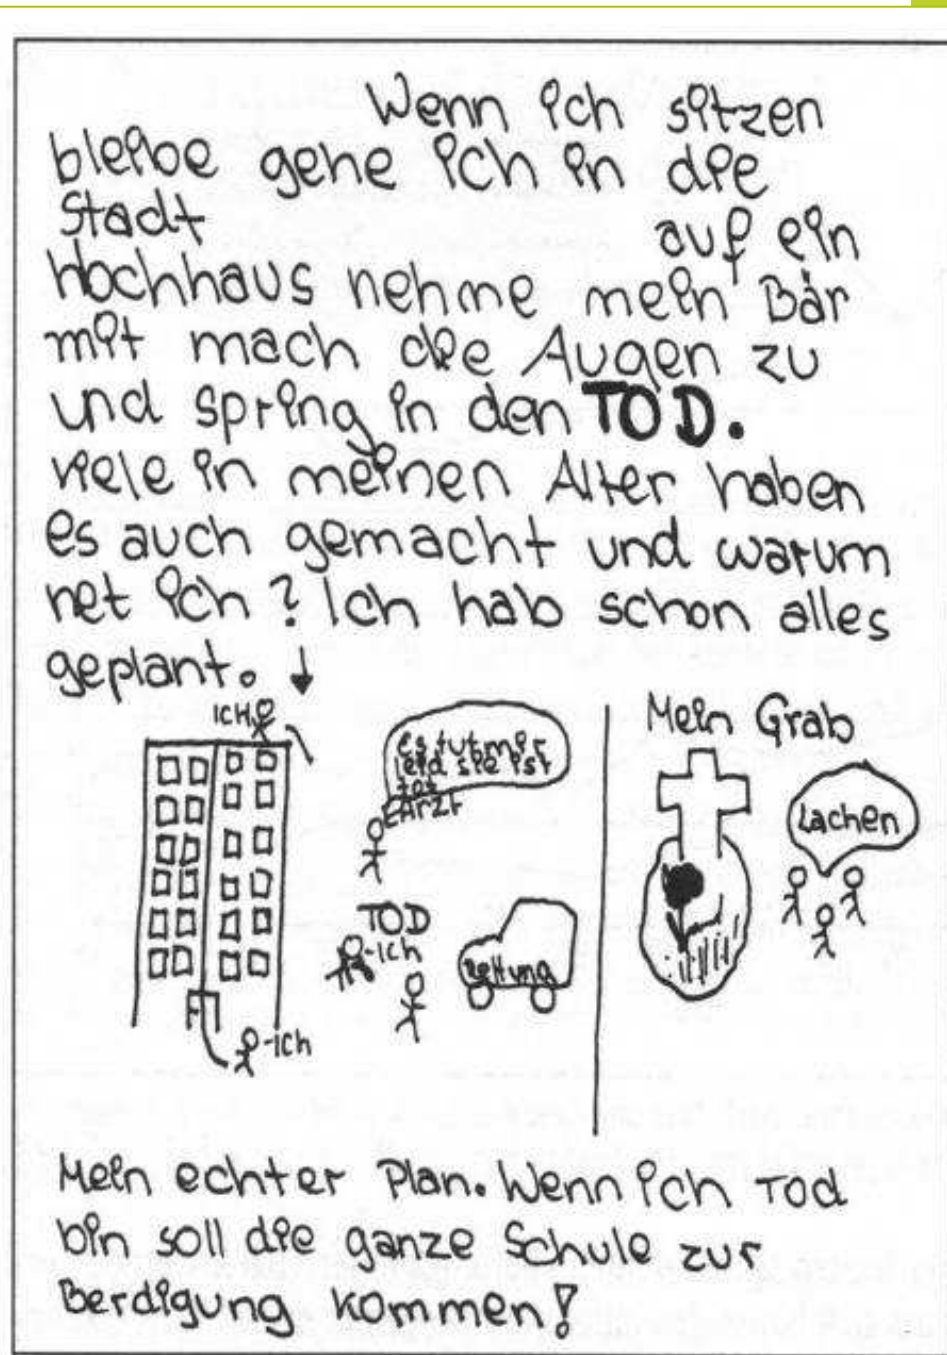 Wenn ich sitzen
bleibe gehe ich in die
Stadt auf ein
Hochhaus nehme mein Bär
mit mach die Augen zu
und spring in den TOD.
viele in meinen Alter haben
es auch gemacht und warum
net ich? Ich hab schon alles
geplant.
ICH
es tut mir
leid sie ist
tot
Arzt
TOD
-ich
Rettung
-ich
Mein Grab
Lachen
Mein echter Plan. Wenn ich TOD
bin soll die ganze Schule zur
Berdigung kommen!